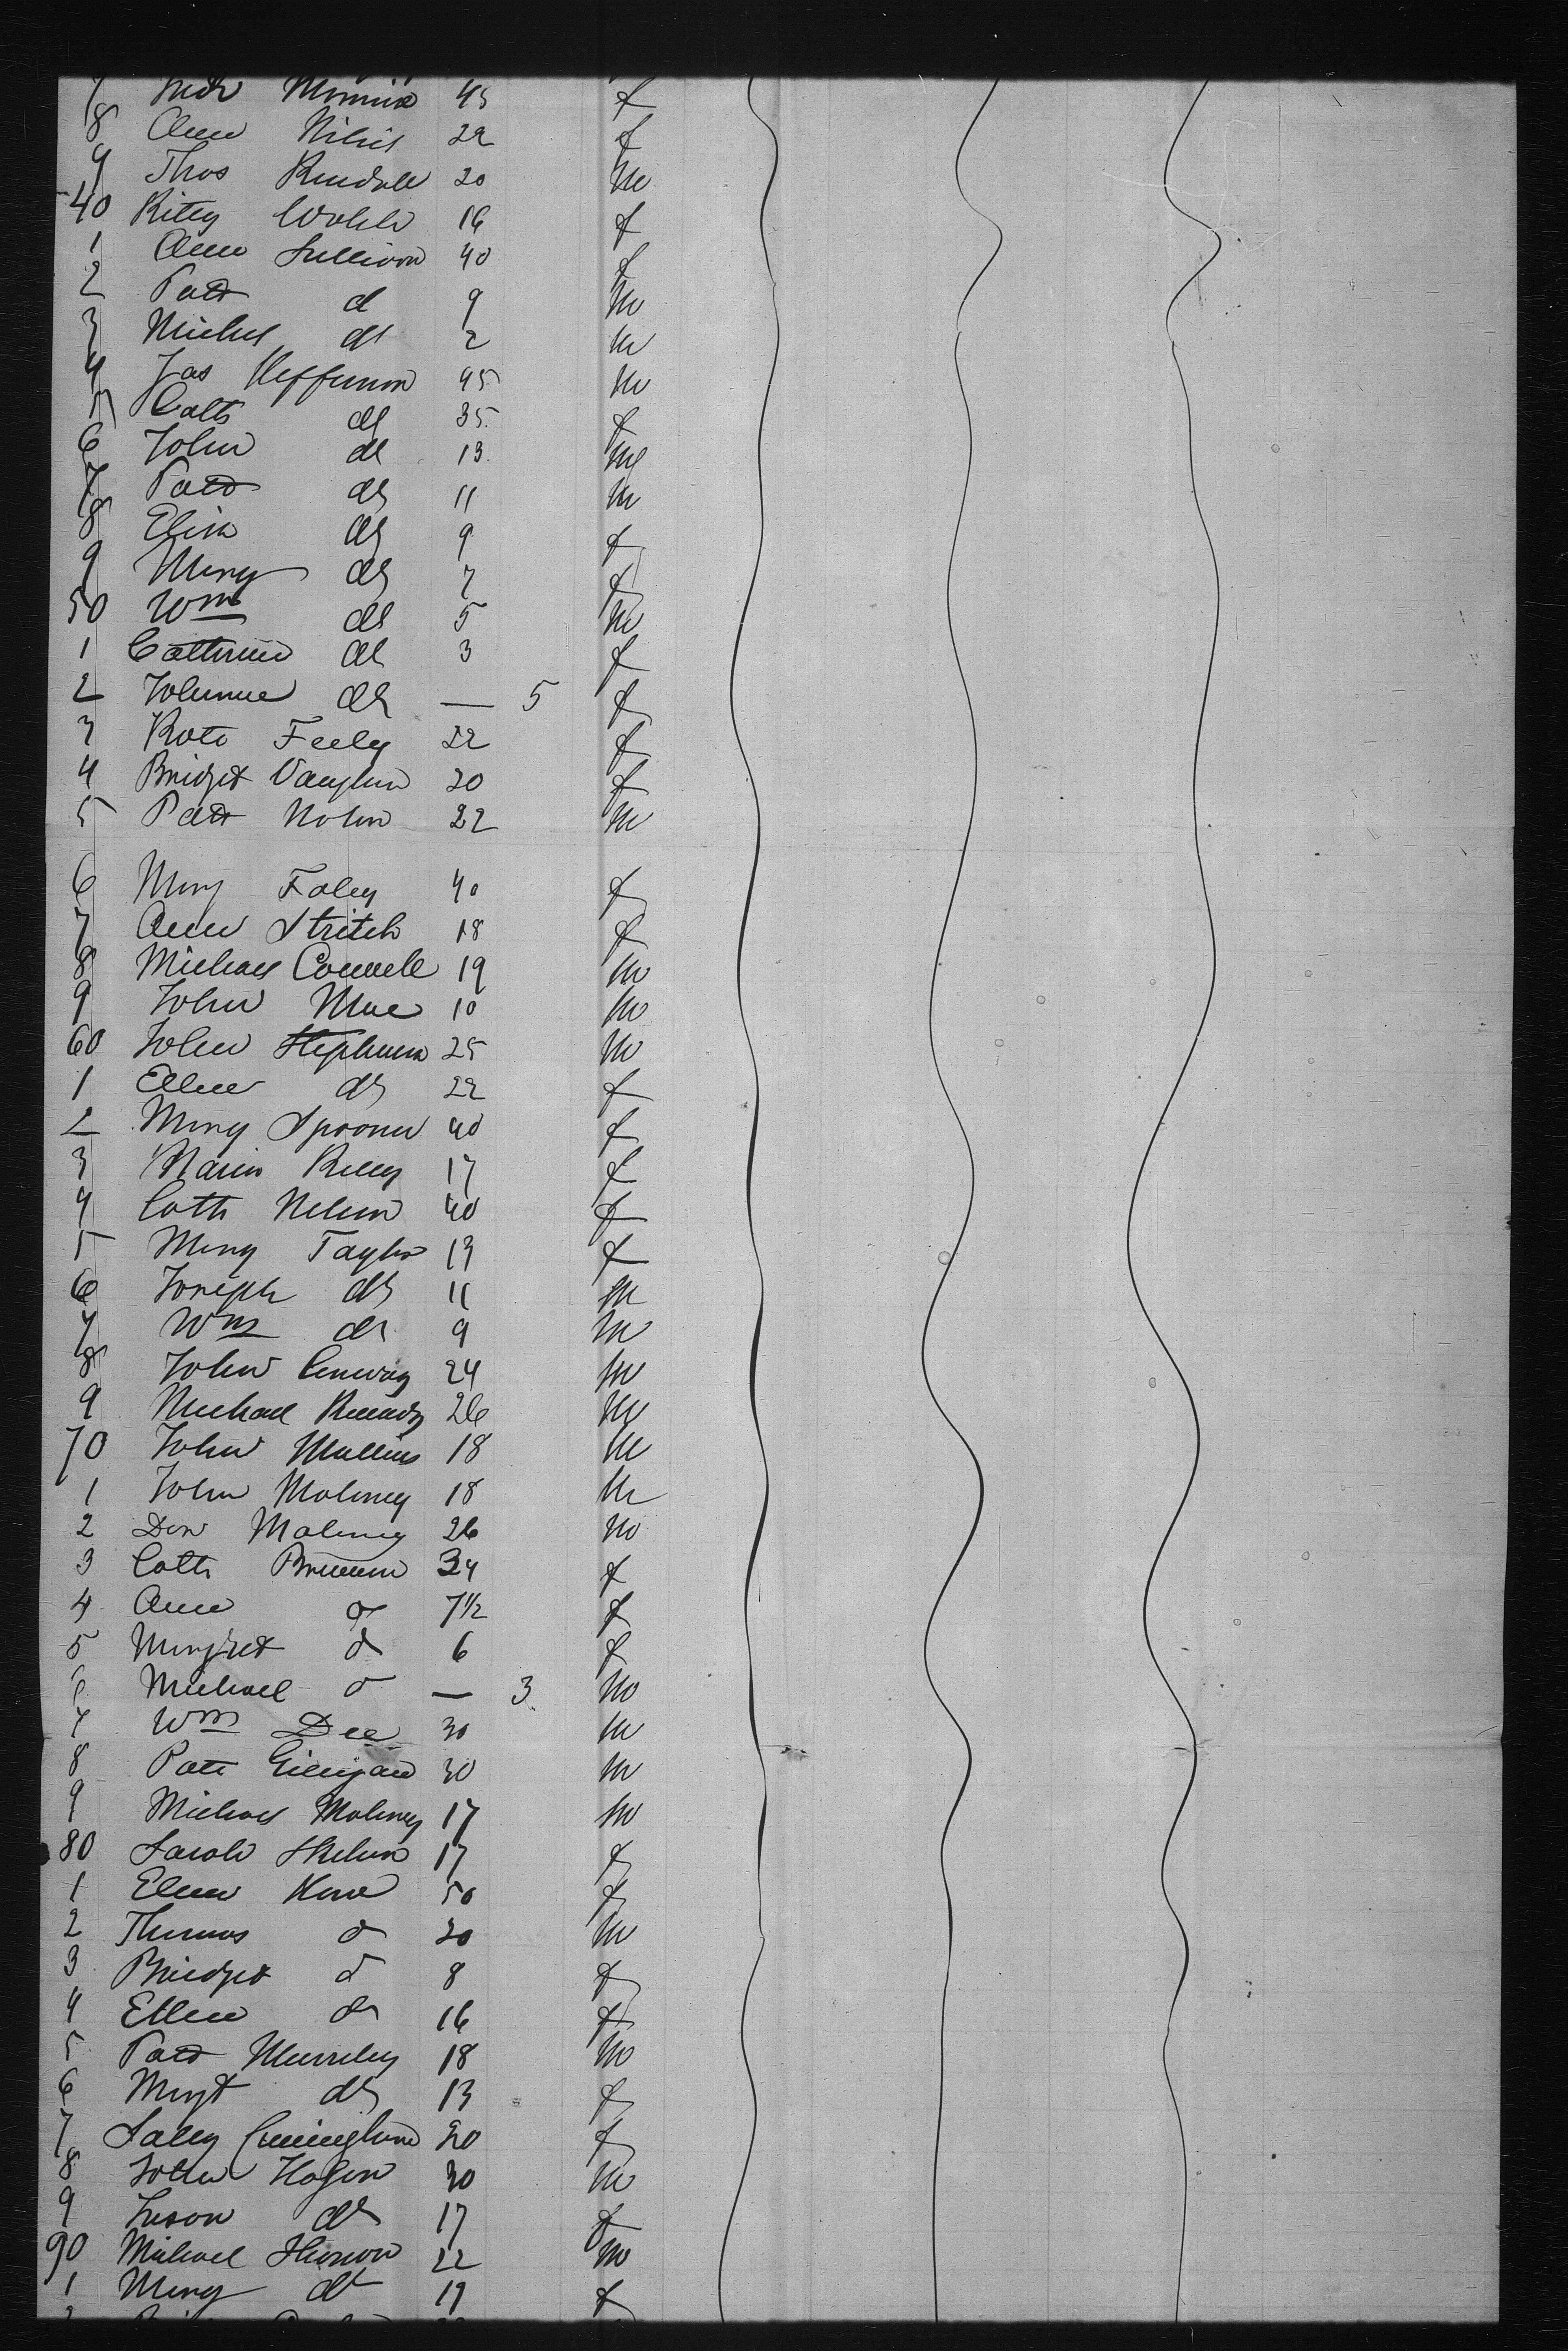 7 45 f
8 Ann 22 f
9 Thos 20 m
40 Kitty 16 f
1 Ann Sullivan 40 f
2 Patt d 9 m
3 Michael do 2 m
4 Jas Heffernan 45 m
5 Cath do 35 f
6 John do 13 m
7 Patt do 11 m
8 Eliza do 9 f
9 Mary do 7 f
50 Wm do 5 m
1 Catherine do 3 f
2 Johanna do — 5 f
3 Kate Feely 22 f
4 Bridget Vaughan 20 f
5 Patt Nolan 22 m
6 Mary Foley 40 f
7 Ann Stritch 18 f
8 Michael Connell 19 m
9 John 10 m
60 John Stephens 25 m
1 Ellen do 22 f
2 Mary Spooner 40 f
3 Maria 17 f
4 Cath 40 f
5 Mary Taylor 13 f
6 Joseph do 11 m
7 Wm do 9 m
8 John Conway 24 m
9 Michael 26 m
70 John Mullins 18 m
1 John Moloney 18 m
2 Moloney 26 m
3 Cath Brennan 34 f
4 Ann do 7 1/2 f
5 Margret do 6 f
6 Michael do — 3 m
7 Wm Dee 30 m
8 Patt Gilligan 30 m
9 Michael Moloney 17 m
80 Sarah 17 f
1 Ellen 50 f
2 Thomas do 20 m
3 Bridget do 8 f
4 Ellen do 16 f
5 Patt 18 m
6 Margt do 13 f
7 Sally Cunningham 20 f
8 John Hogan 30 m
9 Susan do 17 f
90 Michael 22 m
1 Mary do 19 f